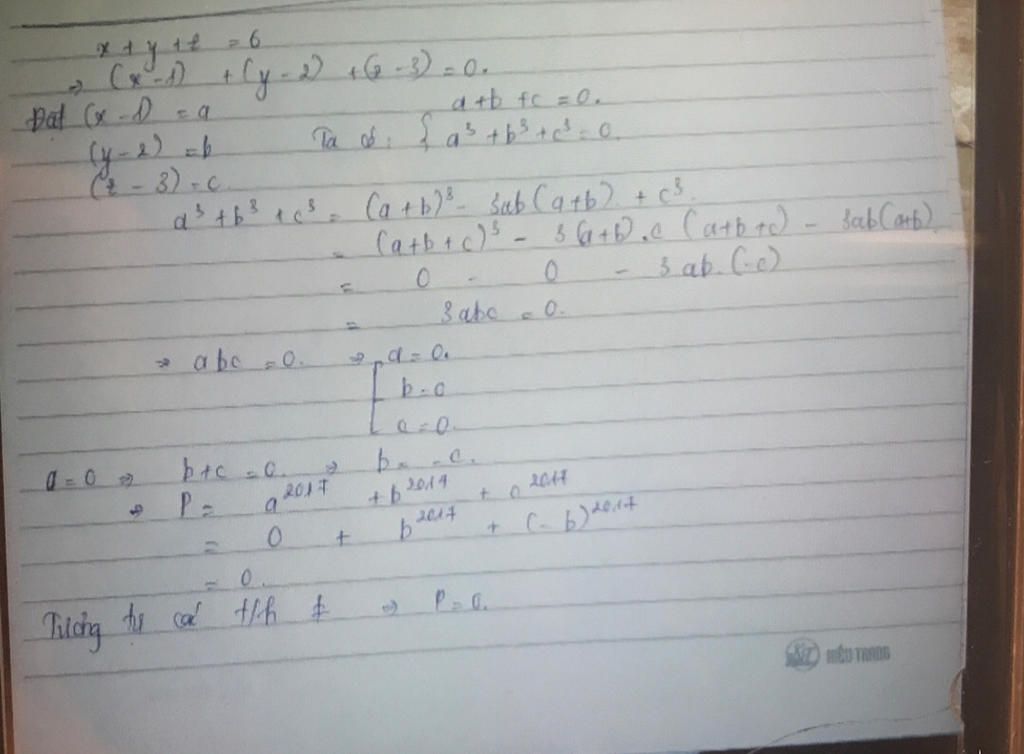 x + y + z = 6
⇒ (x - 1) + (y - 2) + (z - 3) = 0.
Đặt (x - 1) = a
a + b + c = 0.
(y - 2) = b
Ta có : { a³ + b³ + c³ = 0.
(z - 3) = c
a³ + b³ + c³ = (a + b)³ - 3ab(a + b) + c³.
= (a + b + c)³ - 3(a + b).c (a + b + c) - 3ab(a+b)
= 0 - 0 - 3ab.(-c)
= 3abc = 0.
⇒ abc = 0. ⇒ [ a = 0.
b = 0
c = 0.
a = 0 ⇒ b + c = 0. ⇒ b = -c.
⇒ P = a²⁰¹⁷ + b²⁰¹⁷ + c²⁰¹⁷
= 0 + b²⁰¹⁷ + (-b)²⁰¹⁷
= 0.
Tương tự các t/h ≠ ⇒ P = 0.
HIỀU TRANG